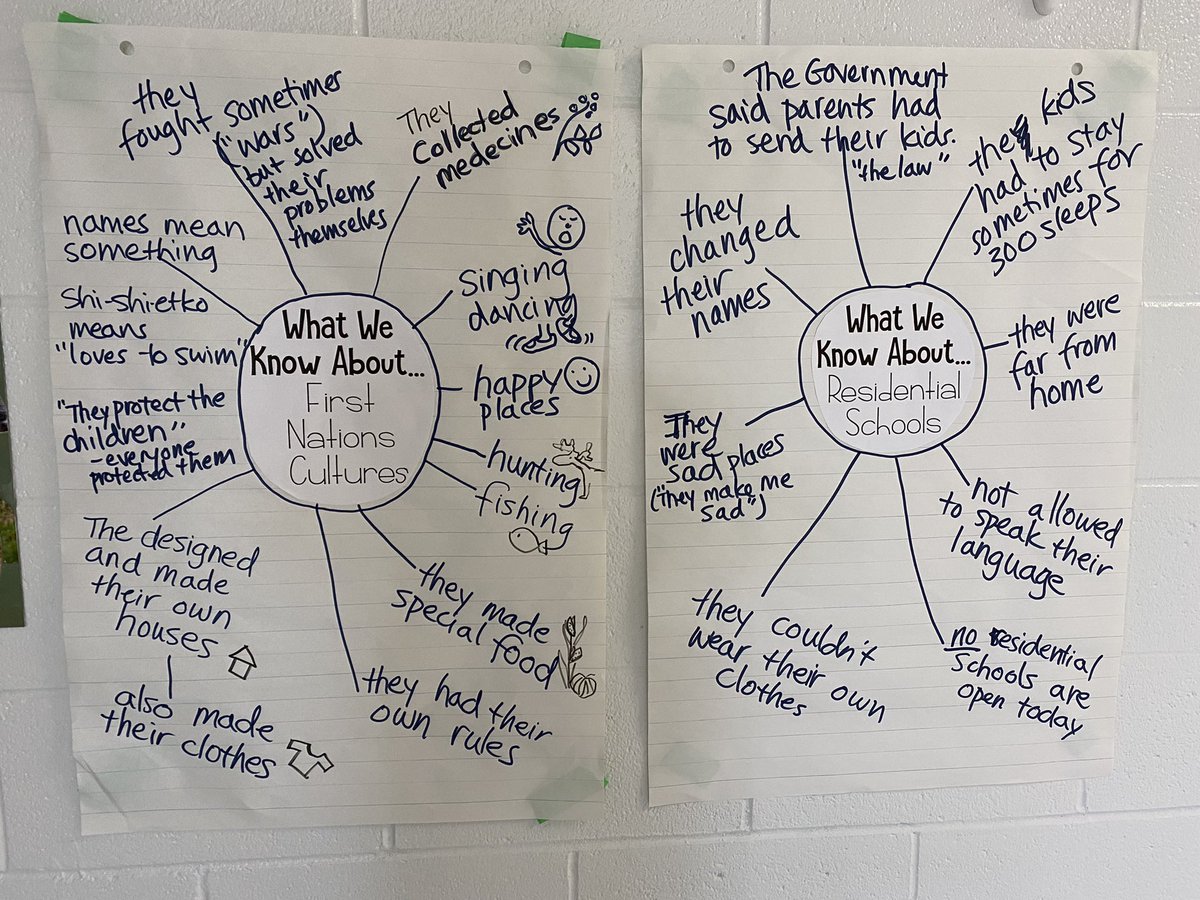 they
fought sometimes
("wars")
but solved
their
problems
themselves
They
collected
medecines
names mean
something
Shi-shi-etko
means
"loves to swim"
singing
dancing
happy
places
"They protect the
children"
- everyone
protected them
hunting
fishing
The designed
and made
their own
houses
also made
their clothes
they made
special food
they had their
own rules
What We
Know About...
First
Nations
Cultures
The Government
said parents had
to send their kids.
"the law"
the kids
had to stay
sometimes for
300 sleeps
they
changed
their
names
they were
far from
home
They
were
sad places
("They make me
sad")
not allowed
to speak their
language
they couldn't
wear their own
clothes
no residential
Schools are
open today
What We
Know About...
Residential
Schools